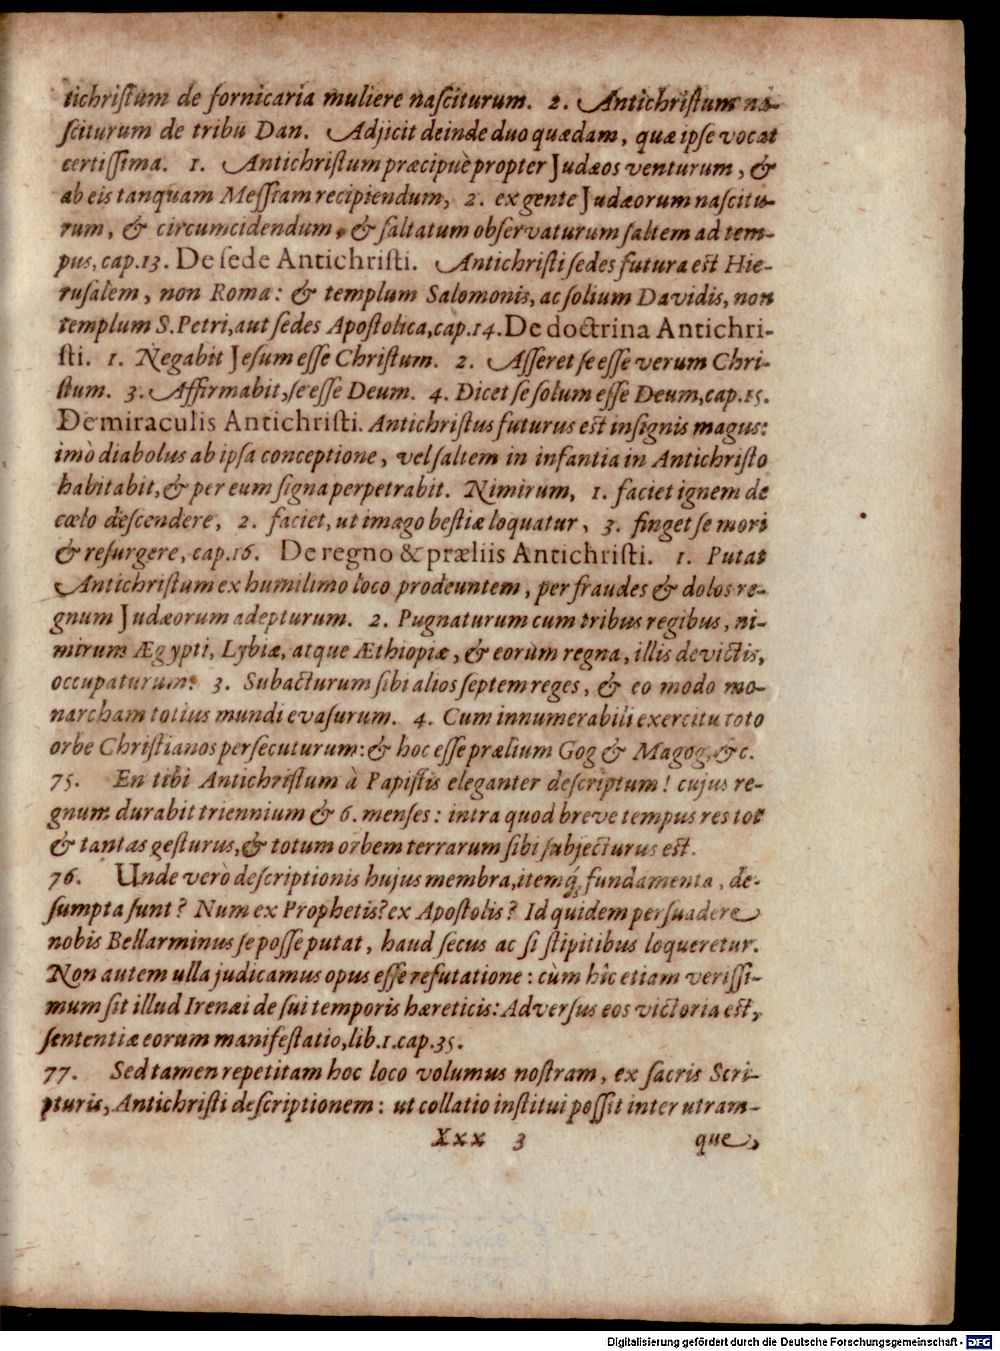 tichriſtum de fornicaria muliere naſciturum. 2. Antichriſtum na-
ſciturum de tribu Dan. Adjicit deinde duo quædam, quæ ipſe vocat
certiſſima. 1. Antichriſtum præcipuè propter Judæos venturum, &
ab eis tanquam Meſſiam recipiendum, 2. ex gente Judæorum naſcitu-
rum, & circumcidendum, & ſaltatum obſervaturum ſaltem ad tem-
pus, cap.13. De ſede Antichriſti. Antichriſti ſedes futura est Hie-
ruſalem, non Roma: & templum Salomonis, ac ſolium Davidis, non
templum S. Petri, aut ſedes Apoſtolica, cap.14. De doctrina Antichri-
ſti. 1. Negabit Jeſum eſſe Chriſtum. 2. Aſſeret ſe eſſe verum Chri-
ſtum. 3. Affirmabit, ſe eſſe Deum. 4. Dicet ſe ſolum eſſe Deum, cap.15.
De miraculis Antichriſti. Antichriſtus futurus est inſignis magus:
imò diabolus ab ipſa conceptione, vel ſaltem in infantia in Antichriſto
habitabit, & per eum ſigna perpetrabit. Nimirum, 1. faciet ignem de
cœlo deſcendere, 2. faciet, ut imago beſtiæ loquatur, 3. finget ſe mori
& reſurgere, cap.16. De regno & præliis Antichriſti. 1. Putat
Antichriſtum ex humilimo loco prodeuntem, per fraudes & dolos re-
gnum Judæorum adepturum. 2. Pugnaturum cum tribus regibus, ni-
mirum Ægypti, Lybiæ, atque Æthiopiæ, & eorùm regna, illis devictis,
occupaturum: 3. Subacturum ſibi alios ſeptem reges, & eo modo mo-
narcham totius mundi evaſurum. 4. Cum innumerabili exercitu toto
orbe Chriſtianos perſecuturum: & hoc eſſe prælium Gog & Magog, &c.
75. En tibi Antichriſtum à Papiſtis eleganter deſcriptum! cujus re-
gnum durabit triennium & 6. menſes: intra quod breve tempus res tot
& tantas geſturus, & totum orbem terrarum ſibi ſubjecturus est.
76. Unde verò deſcriptionis hujus membra, itemq́; fundamenta, de-
ſumpta ſunt? Num ex Prophetis? ex Apoſtolis? Id quidem perſuadere
nobis Bellarminus ſe poſſe putat, haud ſecus ac ſi ſtipitibus loqueretur.
Non autem ulla judicamus opus eſſe refutatione: cùm hîc etiam veriſſi-
mum ſit illud Irenæi de ſui temporis hæreticis: Adverſus eos victoria est,
ſententiæ eorum manifeſtatio, lib.1. cap.35.
77. Sed tamen repetitam hoc loco volumus noſtram, ex ſacris Scri-
pturis, Antichriſti deſcriptionem: ut collatio inſtitui poſſit inter utram-
Xxx 3 que,
Digitalisierung gefördert durch die Deutsche Forschungsgemeinschaft - DFG